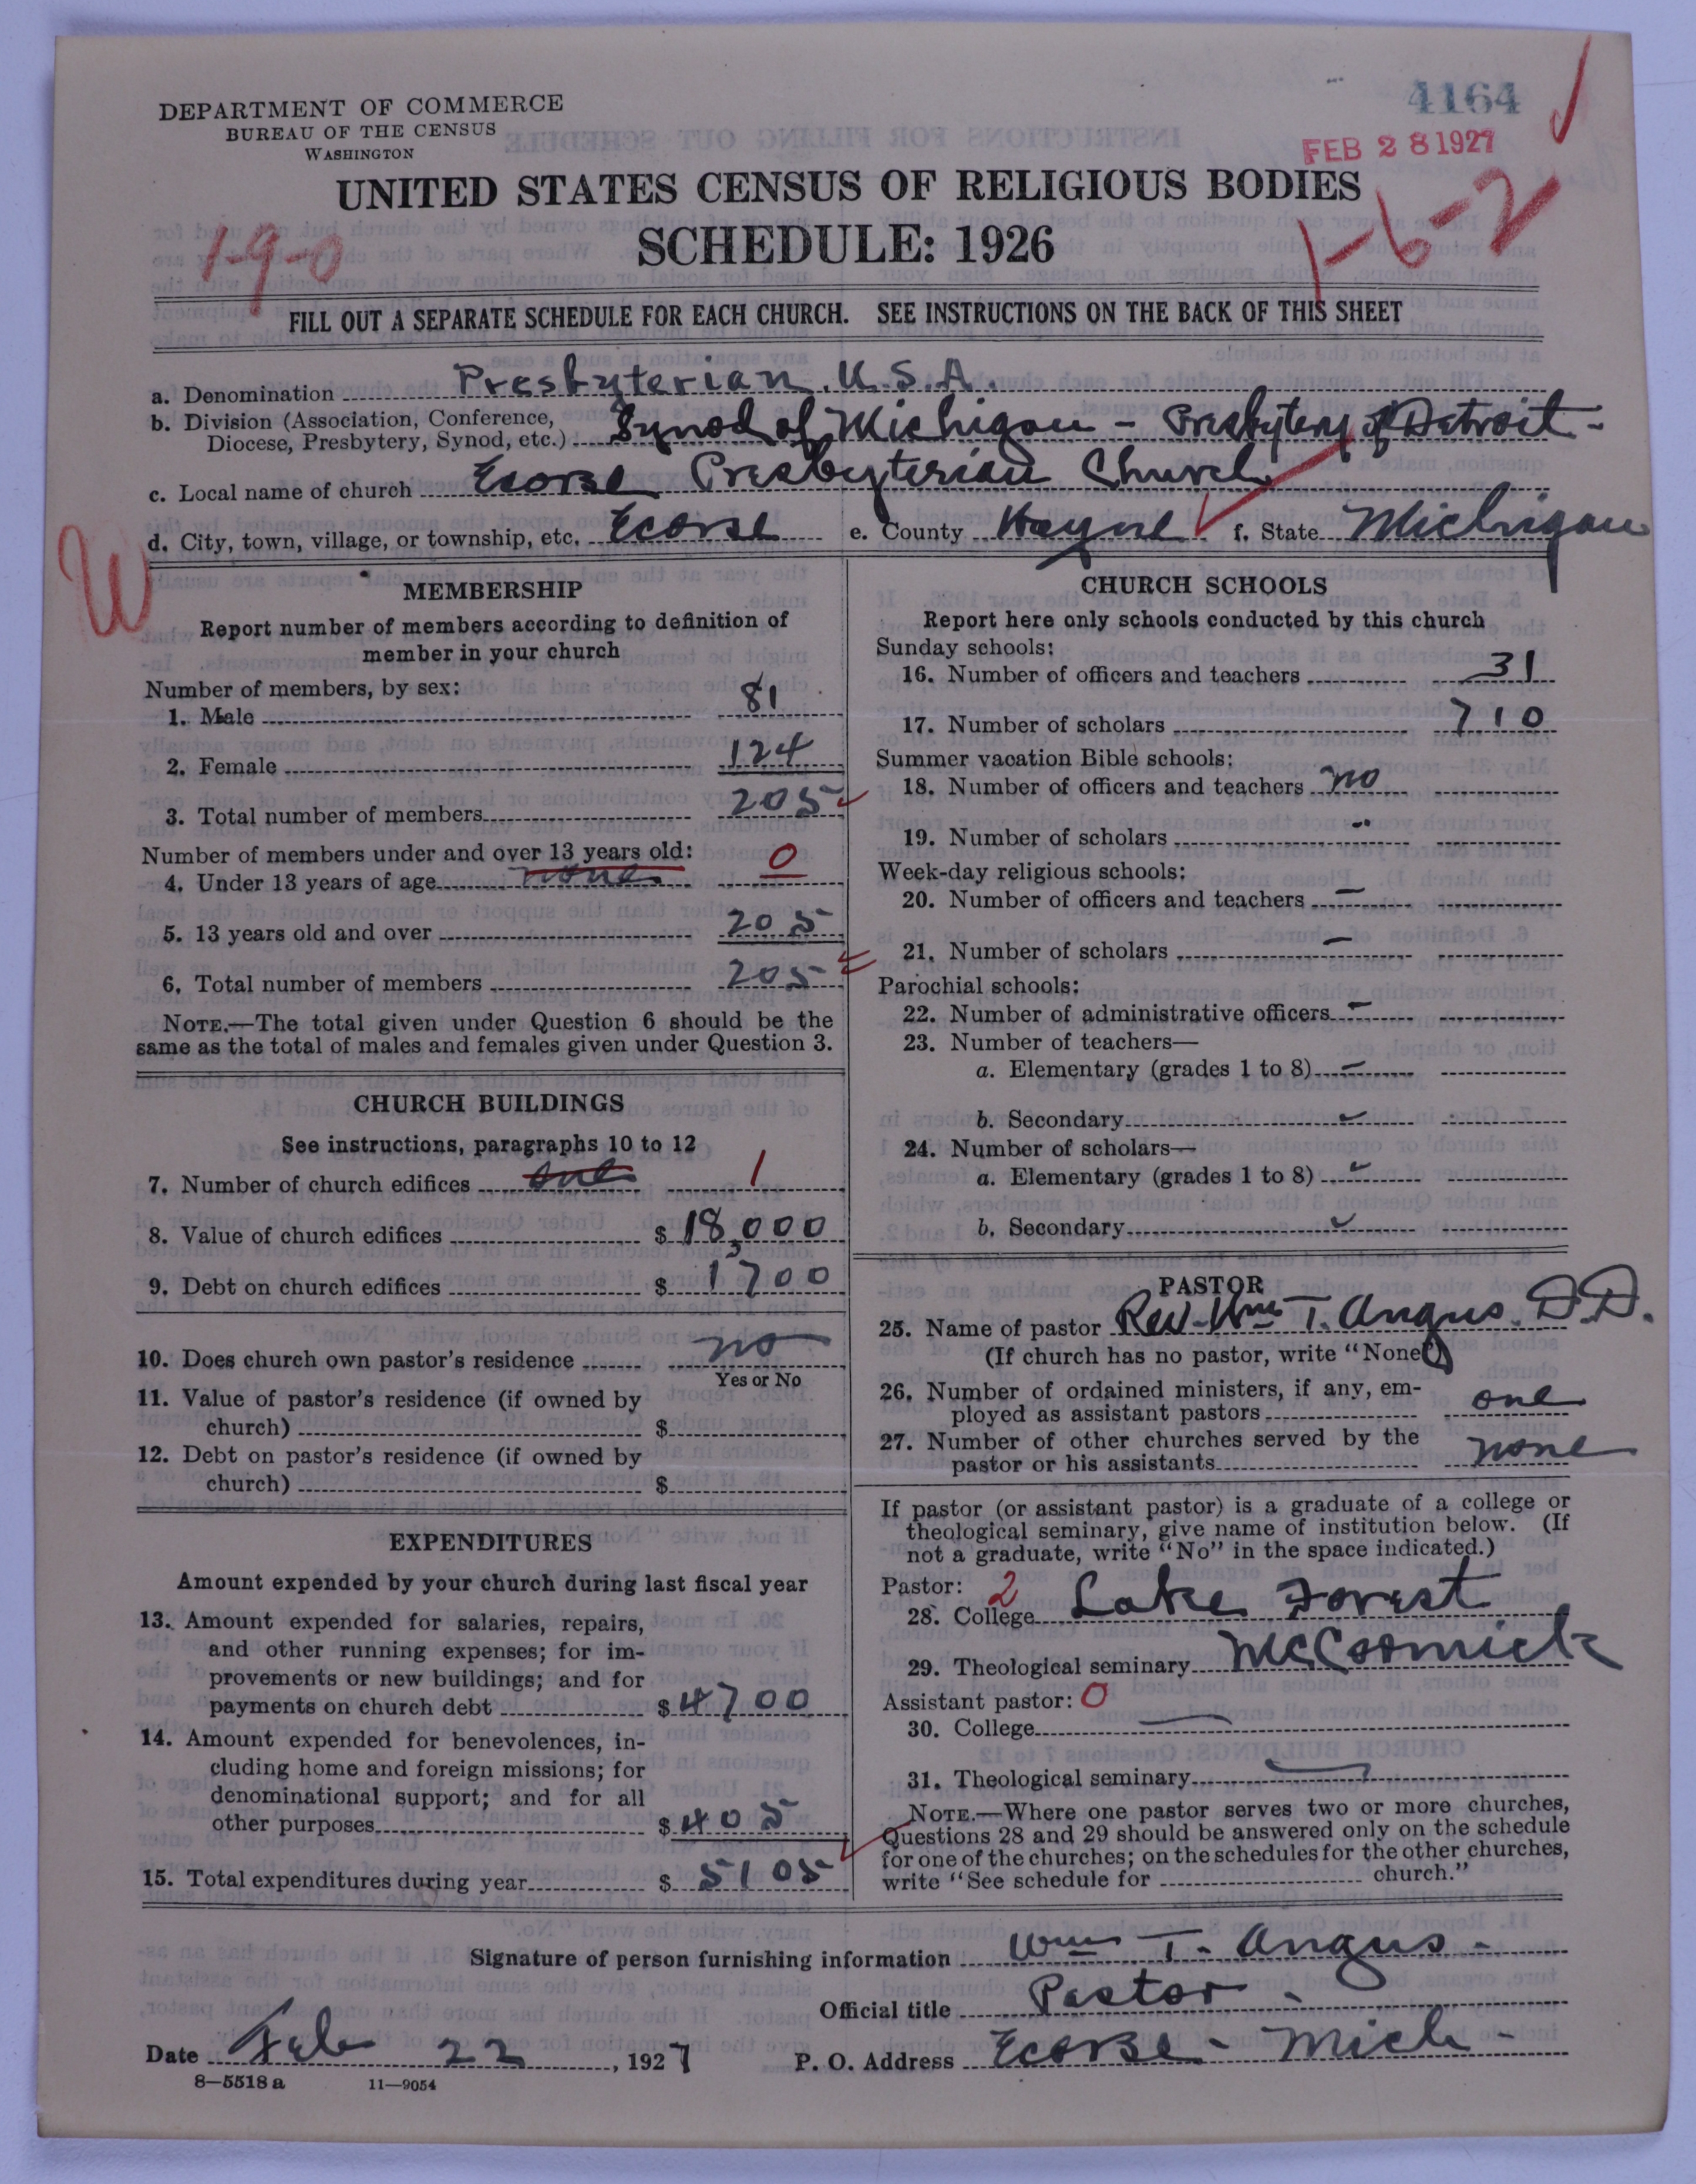 4164
FEB 28 1927
DEPARTMENT OF COMMERCE
BUREAU OF THE CENSUS
WASHINGTON
UNITED STATES CENSUS OF RELIGIOUS BODIES
SCHEDULE: 1926
1-9-0
1-6-2
FILL OUT A SEPARATE SCHEDULE FOR EACH CHURCH. SEE INSTRUCTIONS ON THE BACK OF THIS SHEET
a. Denomination Presbyterian. U.S.A.
b. Division (Association, Conference,
Diocese, Presbytery, Synod, etc.) Synod of Michigan - Presbytery of Detroit -
c. Local name of church Ecorse Presbyterian Church
d. City, town, village, or township, etc. Ecorse e. County Wayne f. State Michigan
W
MEMBERSHIP
Report number of members according to definition of
member in your church
Number of members, by sex:
1. Male 81
2. Female 124
3. Total number of members 205
Number of members under and over 13 years old:
4. Under 13 years of age none 0
5. 13 years old and over 205
6. Total number of members 205
NOTE.—The total given under Question 6 should be the
same as the total of males and females given under Question 3.
CHURCH BUILDINGS
See instructions, paragraphs 10 to 12
7. Number of church edifices one 1
8. Value of church edifices $ 18,000
9. Debt on church edifices $ 1700
10. Does church own pastor's residence no
Yes or No
11. Value of pastor's residence (if owned by
church) $
12. Debt on pastor's residence (if owned by
church) $
EXPENDITURES
Amount expended by your church during last fiscal year
13. Amount expended for salaries, repairs,
and other running expenses; for im-
provements or new buildings; and for
payments on church debt $ 4700
14. Amount expended for benevolences, in-
cluding home and foreign missions; for
denominational support; and for all
other purposes $ 405
15. Total expenditures during year $ 5105
CHURCH SCHOOLS
Report here only schools conducted by this church
Sunday schools:
16. Number of officers and teachers 31
17. Number of scholars 710
Summer vacation Bible schools:
18. Number of officers and teachers no
19. Number of scholars
Week-day religious schools:
20. Number of officers and teachers —
21. Number of scholars —
Parochial schools:
22. Number of administrative officers —
23. Number of teachers—
a. Elementary (grades 1 to 8) —
b. Secondary
24. Number of scholars—
a. Elementary (grades 1 to 8)
b. Secondary
PASTOR
25. Name of pastor Rev. Wm T. Angus. D.D.
(If church has no pastor, write "None")
26. Number of ordained ministers, if any, em-
ployed as assistant pastors one
27. Number of other churches served by the
pastor or his assistants none
If pastor (or assistant pastor) is a graduate of a college or
theological seminary, give name of institution below. (If
not a graduate, write "No" in the space indicated.)
Pastor: 2
28. College Lake Forest
29. Theological seminary McCormick
Assistant pastor: 0
30. College —
31. Theological seminary —
NOTE.—Where one pastor serves two or more churches,
Questions 28 and 29 should be answered only on the schedule
for one of the churches; on the schedules for the other churches,
write "See schedule for church."
Signature of person furnishing information Wm T. Angus -
Official title Pastor -
Date Feb 22, 1927 P. O. Address Ecorse - Mich -
8—5518 a 11—9054